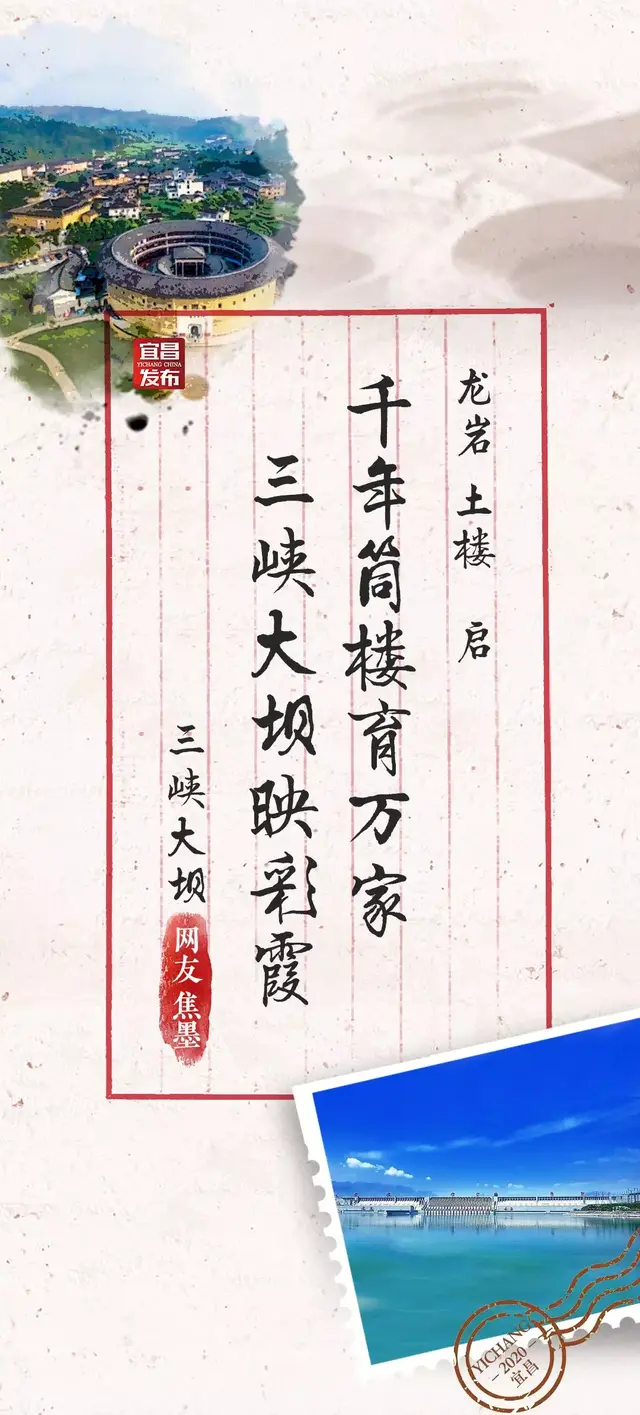 宜昌
YICHANG CHINA
发布
龙岩 土楼 启
千年筒楼育万家
三峡大坝映彩霞
三峡大坝
网友焦墨
YICHANG
2020
宜昌